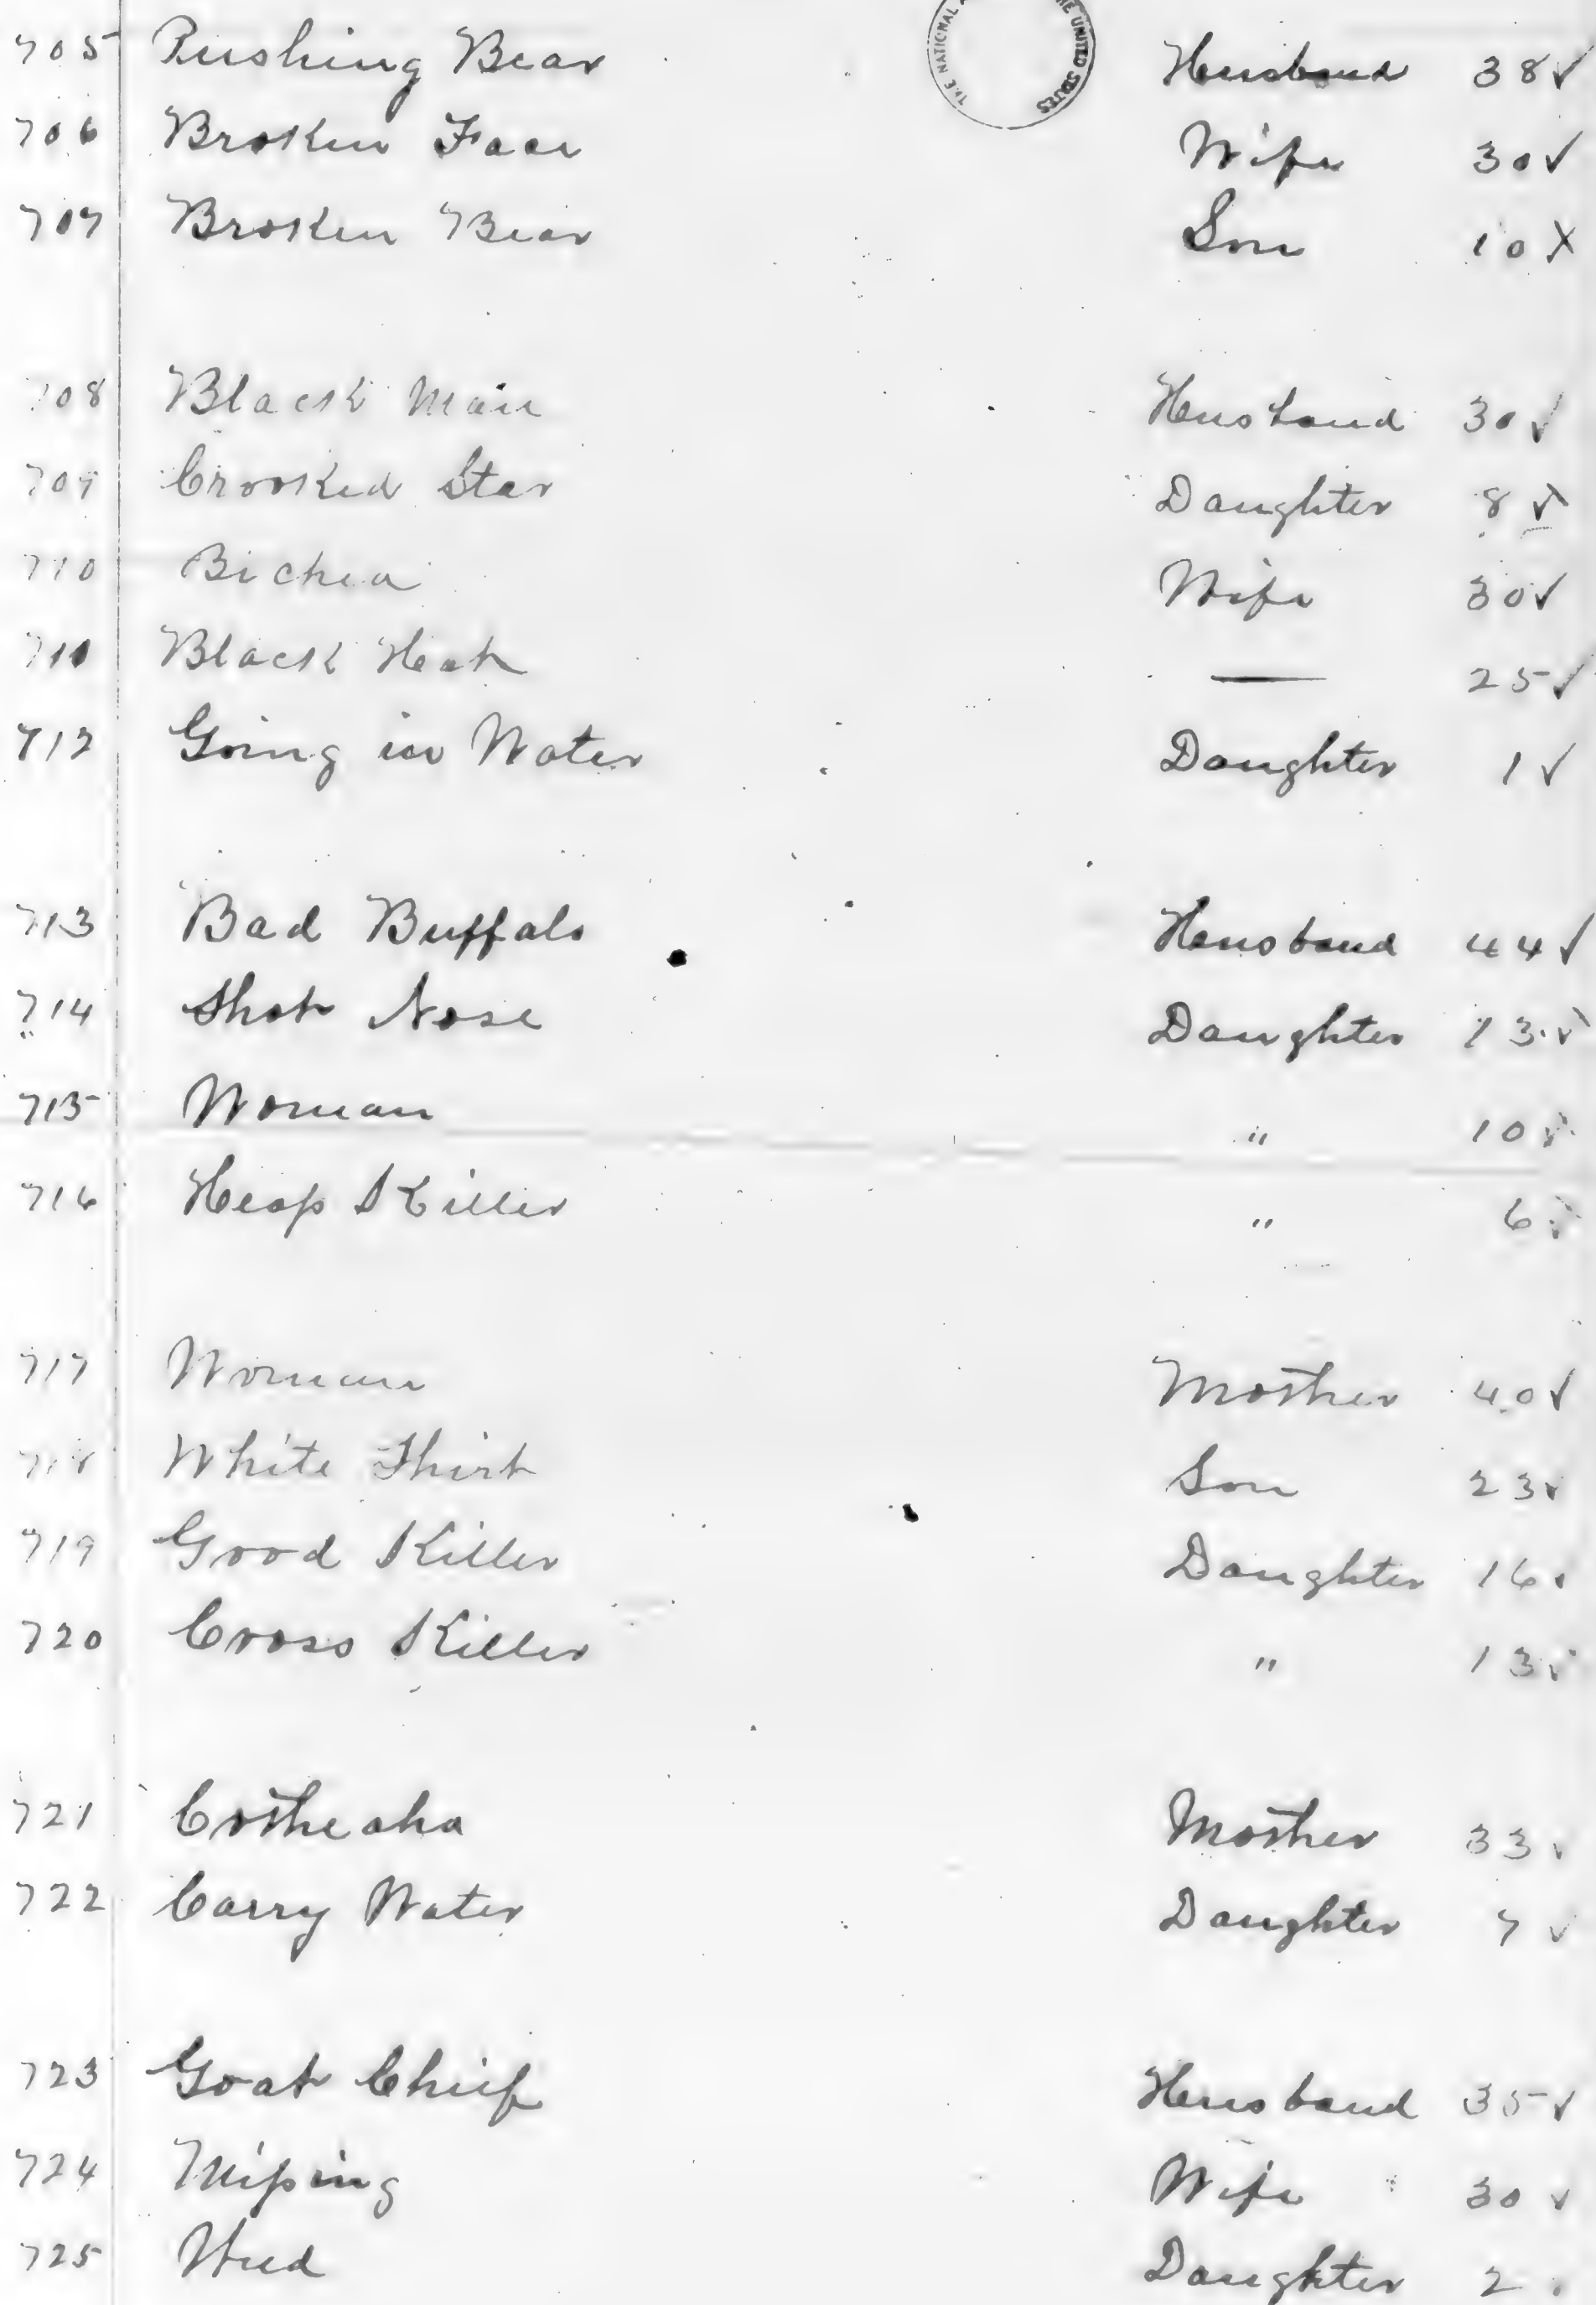 THE NATIONAL THE UNITED STATES
705 Pushing Bear Husband 38 ✓
706 Broken Face Wife 30 ✓
707 Broken Bear Son 10 X
708 Black Man Husband 30 ✓
709 Crooked Star Daughter 8 ✓
710 Bichea Wife 30 ✓
711 Black Heart — 25 ✓
712 Going in Water Daughter 1 ✓
713 Bad Buffalo Husband 44 ✓
714 Shot Nose Daughter 13 ✓
715 Woman " 10 ✓
716 Heap Killer " 6 ✓
717 Woman Mother 40 ✓
718 White Shirt Son 23 ✓
719 Good Killer Daughter 16 ✓
720 Cross Killer " 13 ✓
721 Cotheaha Mother 33 ✓
722 Carry Water Daughter 7 ✓
723 Goat Chief Husband 35 ✓
724 Missing Wife 30 ✓
725 Daughter 2